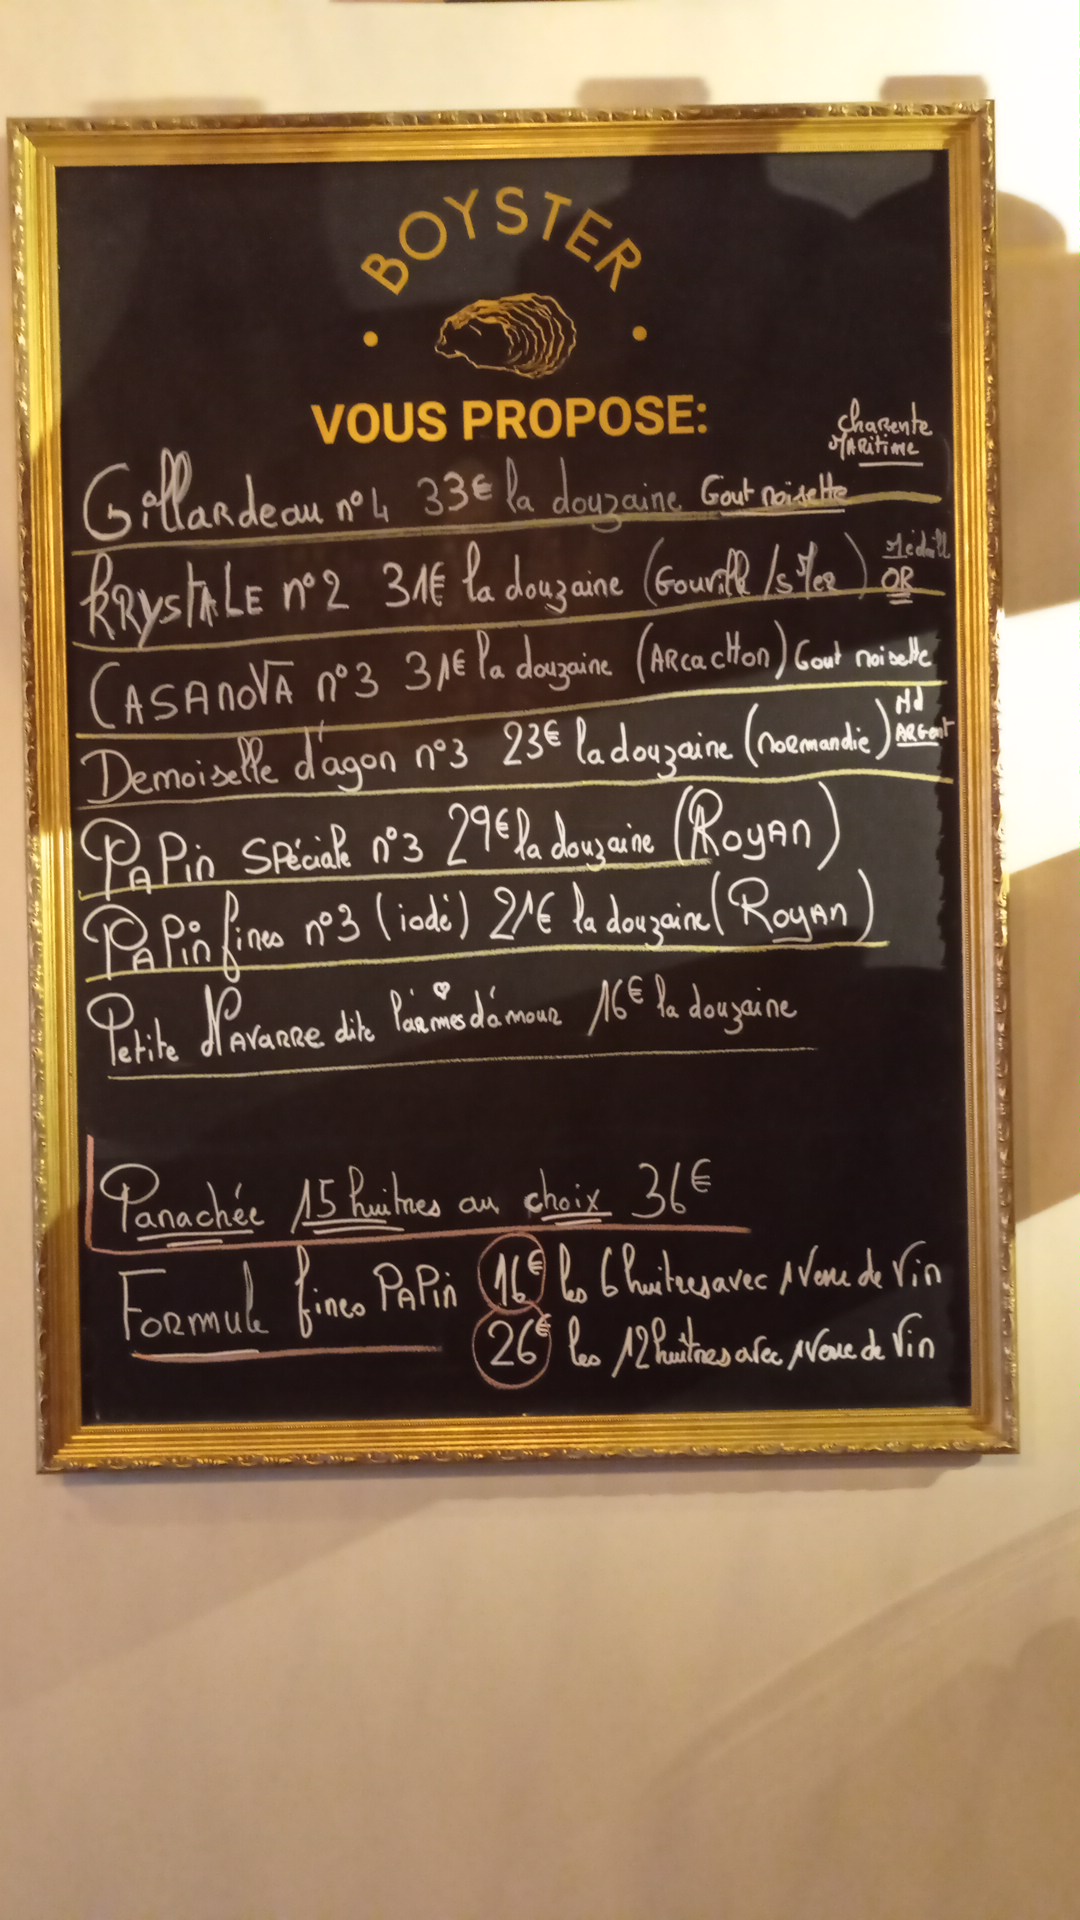 BOYSTER
VOUS PROPOSE:
Charente
Maritime
Gillardeau n°4 33€ la douzaine Gout noisette
KRystALE n°2 31€ la douzaine (Gouville /s Mer) Médaill
OR
CASANOVA n°3 31€ la douzaine (ARcacHon) Gout noisette
Demoiselle d'agon n°3 23€ la douzaine (noRmandie) Md
ARGent
PAPin SPéciale n°3 29€ la douzaine (RoyAn)
PAPin fines n°3 (iodé) 21€ la douzaine (RoyAn)
Petite NAVARRE dite l'armes d'amour 16€ la douzaine
Panachée 15 huitres au choix 36€
FoRmule fines PAPin 16€ les 6 huitres avec 1 Verre de Vin
26€ les 12 huitres avec 1 Verre de Vin